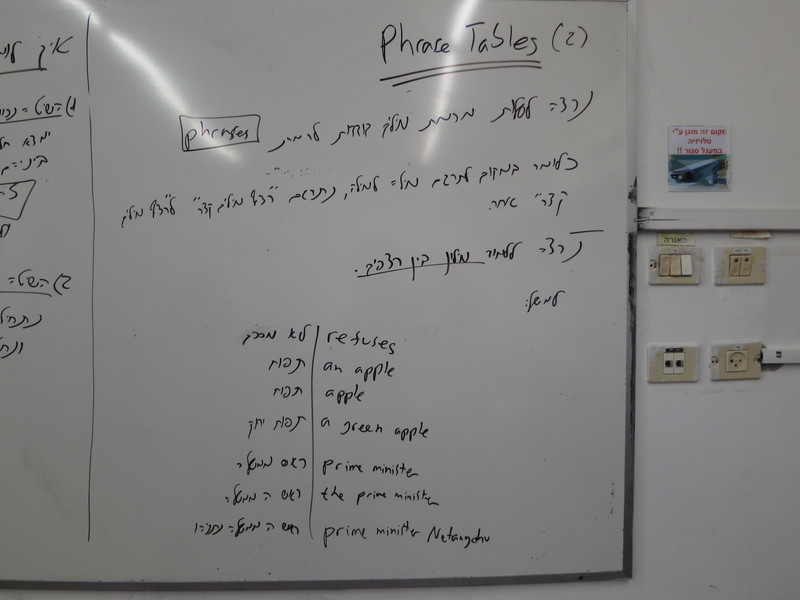 Phrase Tables (2)
נרצה לעלות מרמת מלים בודדות לרמת phrases
כלומר במקום לתרגם מלה למלה, נתרגם "רצף מלים קצר" ל"רצף מלים
קצר" אחר.
נרצה ללמוד מלון בין רצפים.
למשל:
לא מסכים refuses
תפוח an apple
תפוח apple
תפוח ירוק a green apple
ראש ממשלה prime minister
ראש הממשלה the prime minister
ראש הממשלה נתניהו prime minister Netanyahu
איך
1) השיטה
ימצא
2) השיטה
נתחיל
מקום זה מוגן ע"י
טלויזיה
במעגל סגור !!
תאורה